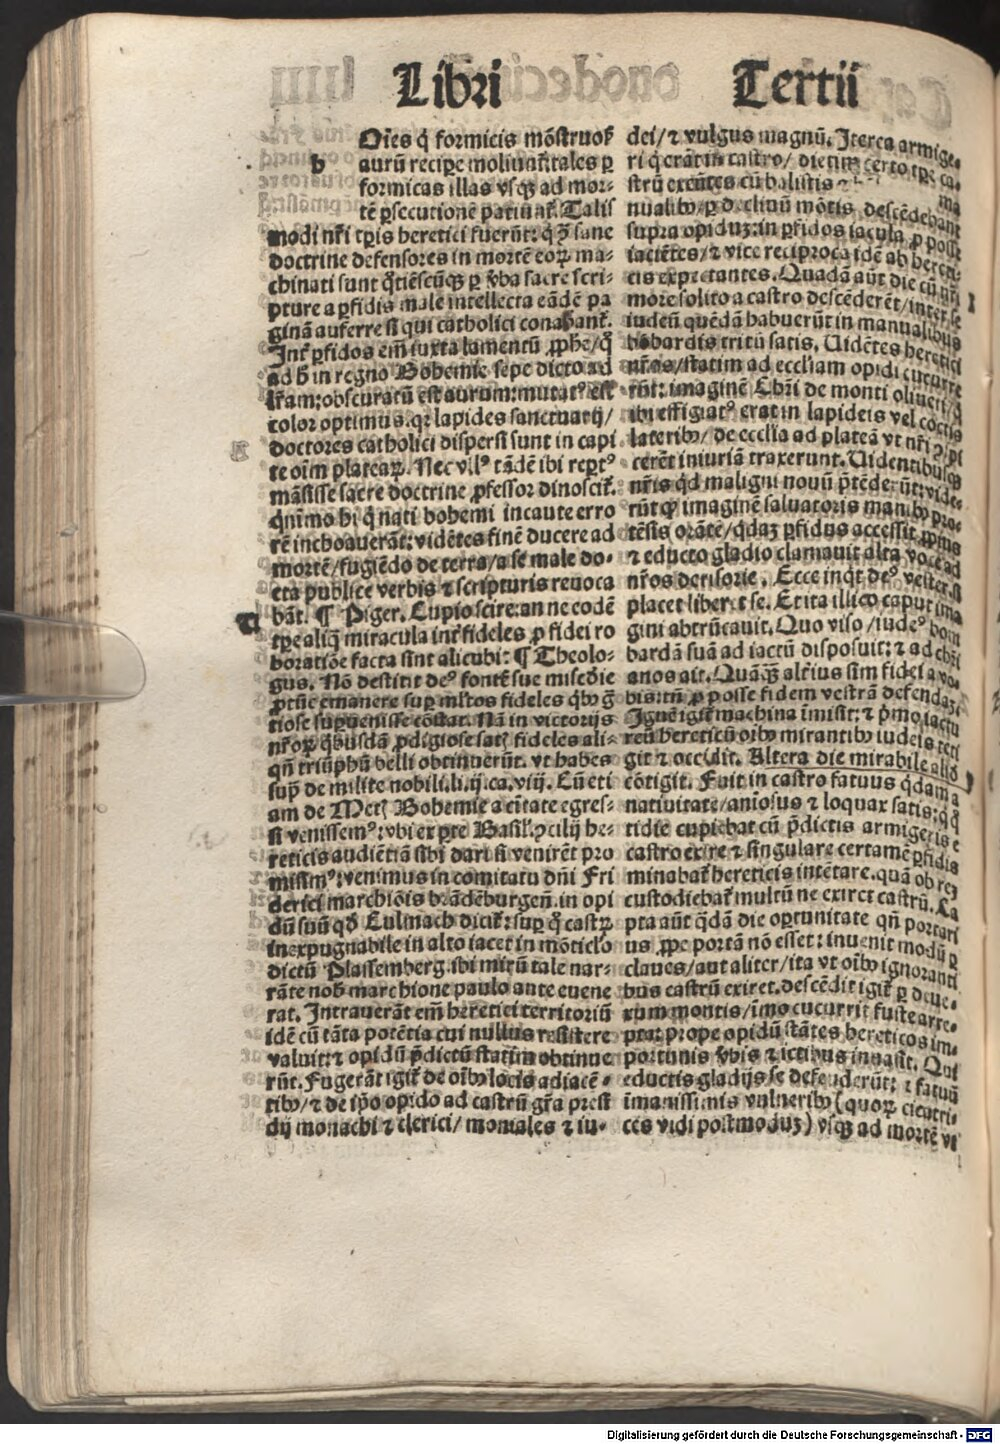 Libri Tertii
b
Oīes q̄ formicis mōstruos̄
aurū recipe moliunt̄: tales p̱
formicas illas vsqȝ ad mor⸗
tē p̱secutionē patiunt̄. Talis
modi nr̄i tp̱is heretici fuerūt: q̄
doctrine defensores in mortē eoꝝ ma⸗
chinati sunt q̄tiēscūqȝ p̱ v̄ba sacre scri⸗
pture a p̱fidis male intellecta eādē pa
ginā auferre si qui catholici conabant̄.
Int̄ p̱fidos em̄ iuxta lamentū ꝓphe/
in regno Bohemie sepe dicto ad
lr̄am: obscuratū est aurum: mutatꝰ est
color optimus. qꝛ lapides sanctuarij/
doctores catholici dispersi sunt in capi
te oīm plateaꝝ. Nec vllꝰ tādē ibi rep̱tꝰ
māsisse sacre doctrine ꝓfessor dinoscit̄.
qn̄īmo hi q̄ nati bohemi incaute erro
rē inchoauerāt: vidētes finē ducere ad
mortē/fugiēdo de terra/a se male do⸗
cta publice verbis ⁊ scripturis reuoca
bāt. ¶ Piger. Cupio scire: an ne eodē
tp̱e aliq̄ miracula int̄ fideles ꝓ fidei ro
boratiōe facta sint alicubi: ¶ Theolo⸗
gus. Nō destitit deꝰ fontē sue miscd̄ie
ꝓtūc emanere sup̱ ml̄tos fideles
tiose supuenisse cōstat. Nā in victorijs
nr̄oꝝ q̄busdā ꝓdigiose satȝ fideles ali⸗
qn̄ triūphū belli obtinuerūt. vt habes
sup̱ de milite nobili. li. ij. ca. viij. Cū eti
am de Bohemie a cītate egres⸗
si venissemꝰ: vbi ex p̱te Basil̄. ꝯcilij he⸗
reticis audiētiā sibi dari si venirēt pro
misimꝰ: venimus in comitatu dn̄i Fri
derici marchiōis brādēburgen̄. in opi
dū suū qḋ Culmach dicit̄: sup̱ q̄ castꝝ
inexpugnabile in alto iacet in mōticl̄o
dictū Plassemberg. ibi mirū tale nar⸗
rāte nob̄ marchione paulo ante euene
rat. Intrauerāt em̄ heretici territoriū
idē cū tāta potētia cui nullus resistere
valuit: ⁊ opidū p̄dictū statim obtinue
rūt. Fugerāt igit̄ de oībꝰ locis adiacē⸗
tibꝰ/⁊ de ip̄o opido ad castrū gr̄a presi
dij monachi ⁊ clerici/ moniales ⁊ iu⸗
dei/⁊ vulgus magnū. Iterea armige⸗
ri q̄ erāt in castro/ dietim certo tp̱e ca⸗
strū exeūtes cū balistis ⁊ ma
nualibꝰ/p̱ decliuū mōtis descēdebant
supra opiduȝ: in p̱fidos iacula ꝓ posse
iaciētes/⁊ vice reciproca idē ab hereti⸗
cis expectantes. Quadā aūt die cū nr̄i
more solito a castro descēderēt/inter se
iudeū quēdā habuerūt in manualibus
bōbardis tritū satis. Uidētes heretici
nr̄os/statim ad eccl̄iam opidi cucurre
rūt: imaginē Chr̄i de monti oliueti/q̄
ibi effigiatꝰ erat in lapideis vel coctis
lateribꝰ/ de eccl̄ia ad plateā vt nr̄i
cerēt iniuriā traxerunt. Uidentibusqȝ
nr̄is qḋ maligni nouū p̄tēderūt: vide⸗
rūt imaginē saluatoris manibꝰ pro⸗
tēsis orāte/q̄daȝ p̱fidus accessit ꝓpius
⁊ educto gladio clamauit alta voce ad
nr̄os derisorie. Ecce inq̄t deꝰ vester, si
placet liberet se. Et ita illico caput ima
gini abtrūcauit. Quo viso/iudeꝰ bom
bardā suā ad iactū disposuit: ⁊ ad chr̄i
anos ait. Quāqȝ alt̄ius sim fidei a vo⸗
bis: tn̄ ꝓ posse fidem vestrā defendaȝ.
Ignē igit̄ machina īmisit: ⁊ p̄mo iactu
reū hereticū oībꝰ mirantibꝰ iudeis teti
git ⁊ occidit. Altera die mirabile aliḋ
cōtigit. Fuit in castro fatuus q̄dam a
natiuitate/aniosus ⁊ loquax satis:
tidie cupiebat cū p̄dictis armigeris e
castro exire ⁊ singulare certamē p̱fidis
minabat̄ hereticis intētare. quā ob rez
custodiebat̄ multū ne exiret castrū. Ca
pta aūt q̄dā die op̱tunitate qn̄ portari
us ꝓpe portā nō esset: inuenit modū p̱
claues/aut aliter/ita vt oībꝰ ignoranti
bus castrū exiret. descēdit igit̄ p̱ deue⸗
xum montis/īmo cucurrit fuste arre⸗
pta: prope opidū stātes hereticos im⸗
portunis v̄bis ⁊ ictibus inuasit. Qui
eductis gladijs se defenderūt: ⁊ fatuū
īmanissimis vulneribꝰ (quoꝝ cicatri⸗
ces vidi postmoduȝ) vsqȝ ad mortē vi